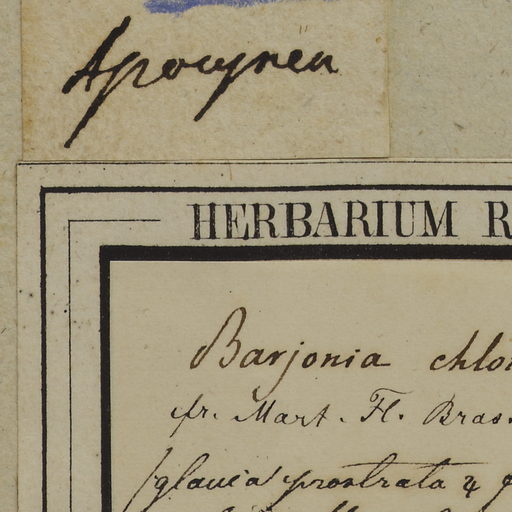 Apocynea
HERBARIUM R
Barjonia chlor
fr. Mart. Fl. Bras.
glauca prostrata ♃